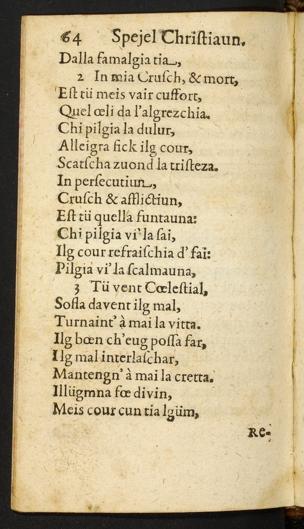 64 Spejel Christiaun.
Dalla famalgia tia,
2 In mia Crusch, & mort,
Est tü meis vair cuffort,
Quel œli da l'algrezchia.
Chi pilgia la dulur,
Alleigra fick ilg cour,
Scatscha zuond la tristeza.
In persecutiun,
Crusch & afflictiun,
Est tü quella funtauna:
Chi pilgia vi' la sai,
Ilg cour refraischia d' fai:
Pilgia vi' la scalmauna,
3 Tü vent Cœlestial,
Sofla davent ilg mal,
Turnaint' à mai la vitta.
Ilg bœn ch'eug possa far,
Ilg mal interlaschar,
Mantengn' à mai la cretta.
Illügmna fœ divin,
Meis cour cun tia lgüm,
Re-